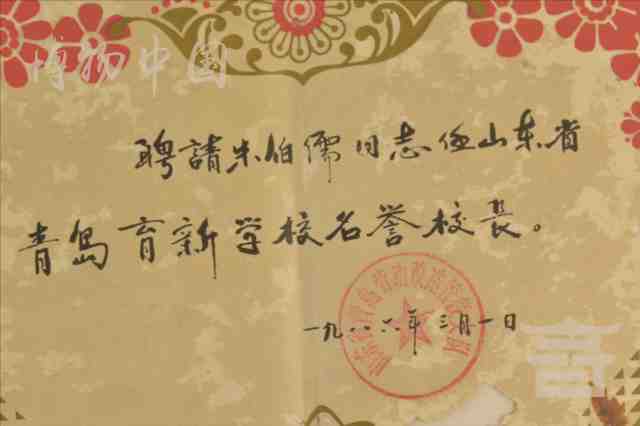 博物中国
聘請朱伯儒同志任山东省
青岛育新学校名誉校長。
一九八六年三月一日